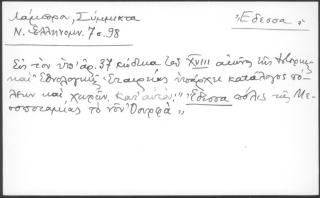 Λάμπρου, Σύμμικτα
Ν. Ἑλληνομν. 7ος. 98
"Εδεσσα"
Εἰς τὸν ὑπ' ἀρ. 37 κώδικα τοῦ XVIII αἰῶνος τῆς Ἱστορικῆς
καὶ Ἐθνολογικῆς Ἑταιρείας ὑπάρχει κατάλογος πό-
λεων καὶ χωρῶν κατ' αὐτόν "Ἔδεσσα πόλις τῆς Με-
σοποταμίας τὸ νῦν Ὀυρφᾶ"